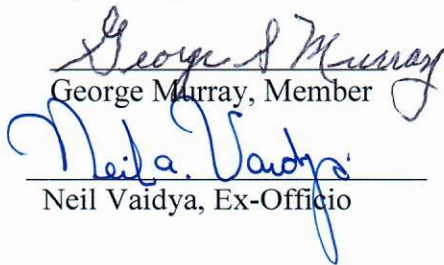 George S Murray
George Murray, Member
Neil A. Vaidya
Neil Vaidya, Ex-Officio